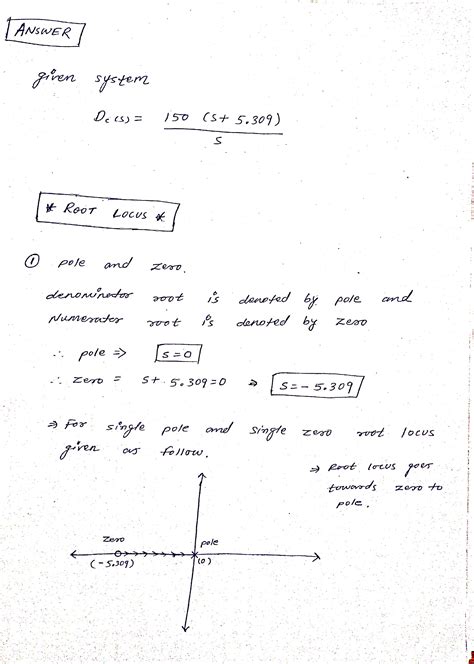 ANSWER
given system
Dc(s) = 150 (s+ 5.309)
s
* ROOT LOCUS *
① pole and zero.
denominator root is denoted by pole and
Numerator root is denoted by zero
∴ pole ⇒ s=0
∴ zero = s+ 5.309=0 ⇒ s=-5.309
⇒ For single pole and single zero root locus
given as follow.
⇒ Root locus goes
towards zero to
pole.
zero
pole
(-5.309)
(0)